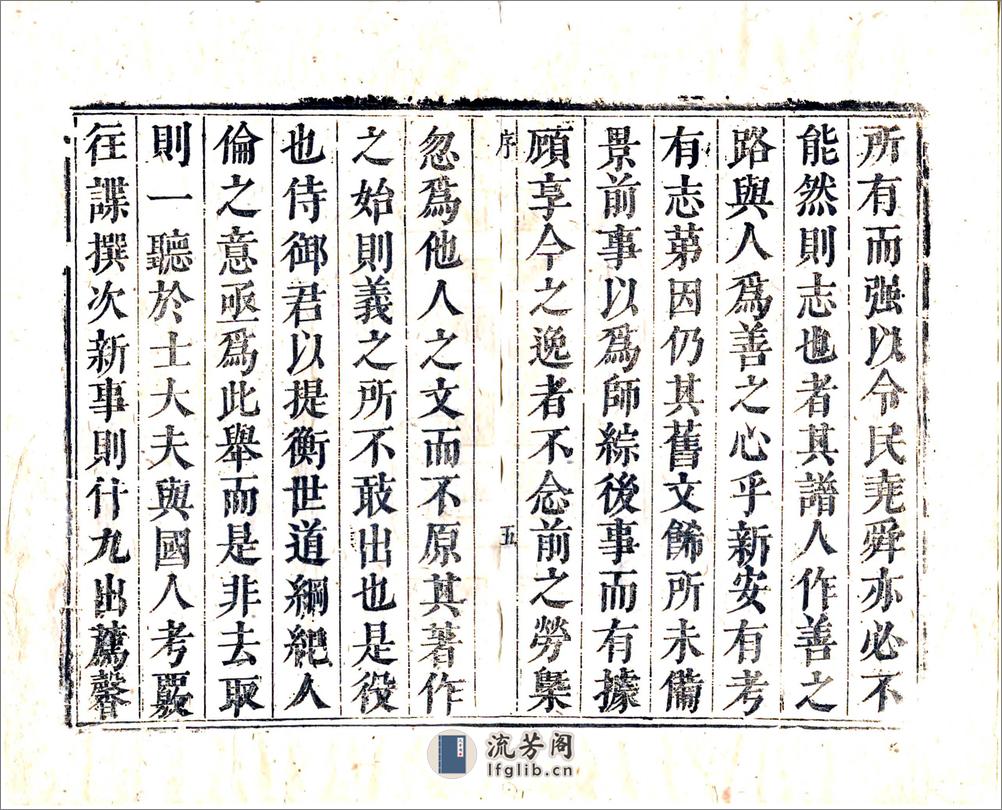 所有而强以令民堯舜亦必不
能然則志也者其譜人作善之
路與人爲善之心乎新安有考
有志苐因仍其舊文餙所未備
景前事以爲師綜後事而有據
顧享今之逸者不念前之勞槩
序 五
忽爲他人之文而不原其著作
之始則義之所不敢出也是役
也侍御君以提衡世道綱紀人
倫之意亟爲此舉而是非去取
則一聽於士大夫與國人考覈
往諜撰次新事則什九出薦馨
流芳阁
lfglib.cn